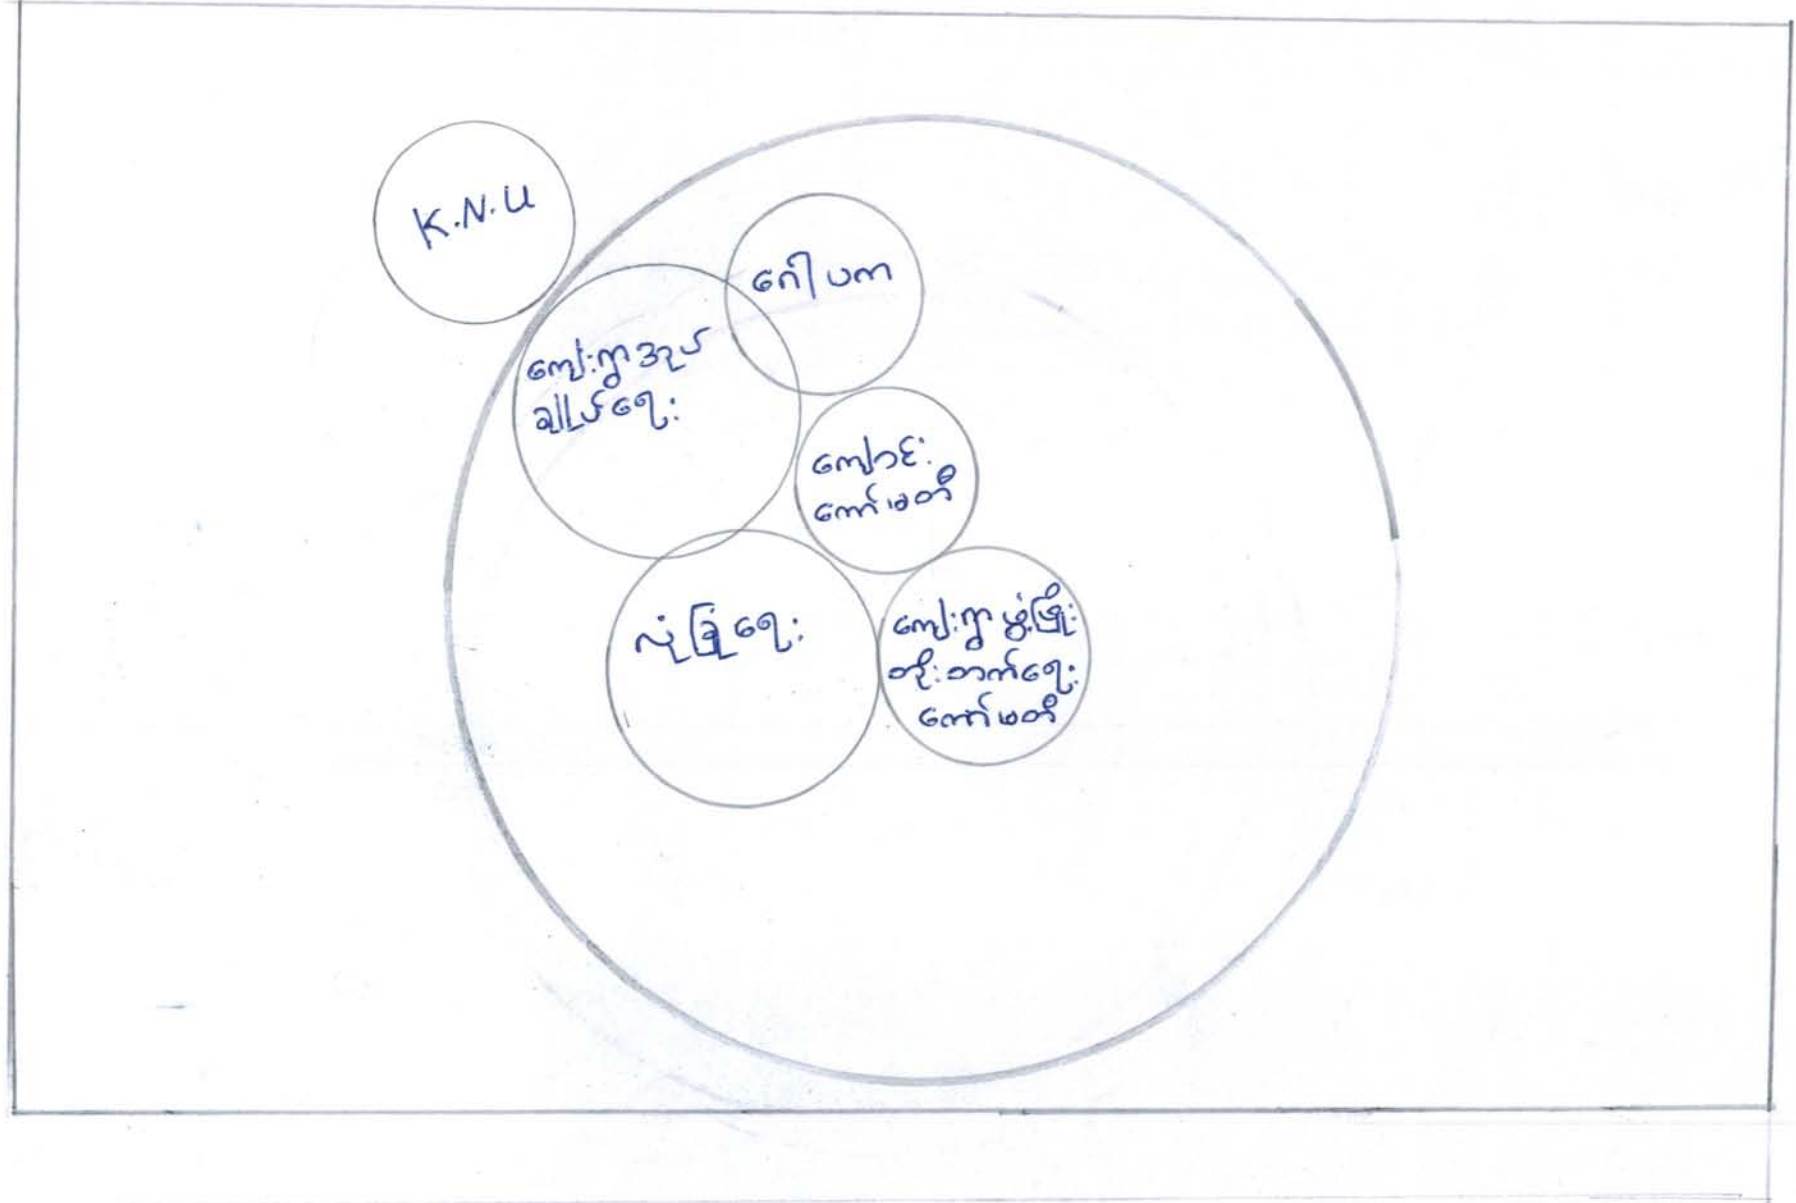 K.N.U
ဂေါပက
ကျေးရွာအုပ်
ချုပ်ရေး
ကျောင်း
ကော်မတီ
လုံခြုံရေး
ကျေးရွာဖွံ့ဖြိုး
တိုးတက်ရေး
ကော်မတီ